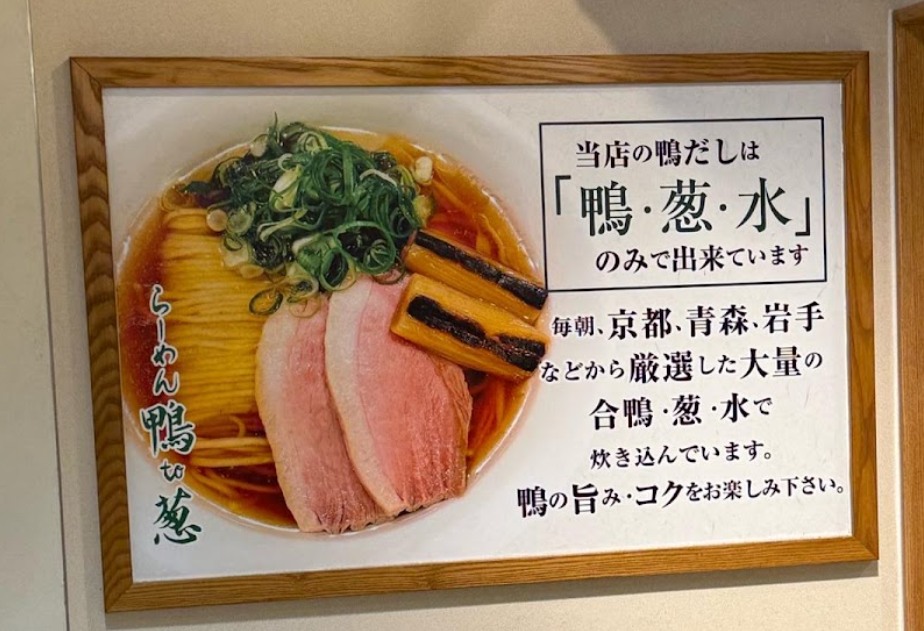 当店の鴨だしは
「鴨・葱・水」
のみで出来ています
毎朝、京都、青森、岩手
などから厳選した大量の
合鴨・葱・水で
炊き込んでいます。
鴨の旨み・コクをお楽しみ下さい。
らーめん鴨to葱